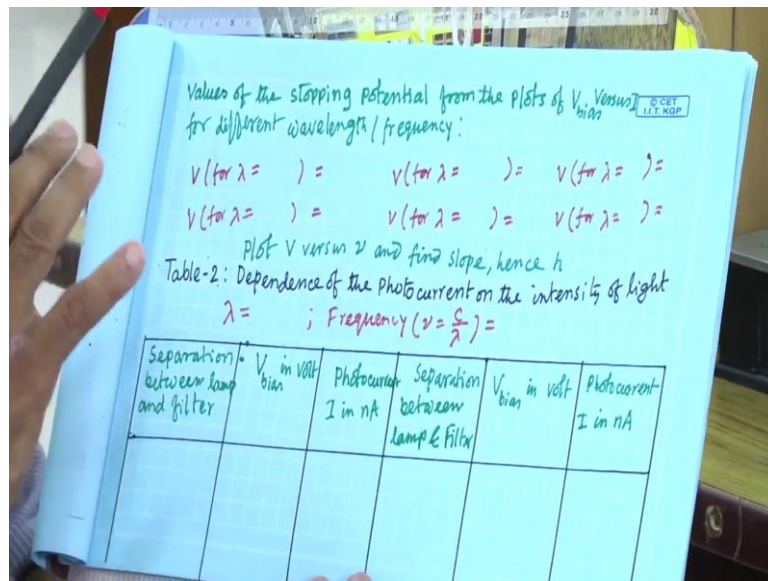 Values of the stopping potential from the plots of V_bias Versus I
for different wavelength / frequency :
© CET
I.I.T. KGP
V (for λ = ) = V (for λ = ) = V (for λ = ) =
V (for λ = ) = V (for λ = ) = V (for λ = ) =
Plot V versus ν and find slope, hence h
Table-2 : Dependence of the photocurrent on the intensity of light
λ = ; Frequency (ν = c/λ) =
Separation between lamp and filter
V_bias in volt
Photocurrent I in nA
Separation between lamp & Filter
V_bias in volt
Photocurrent I in nA